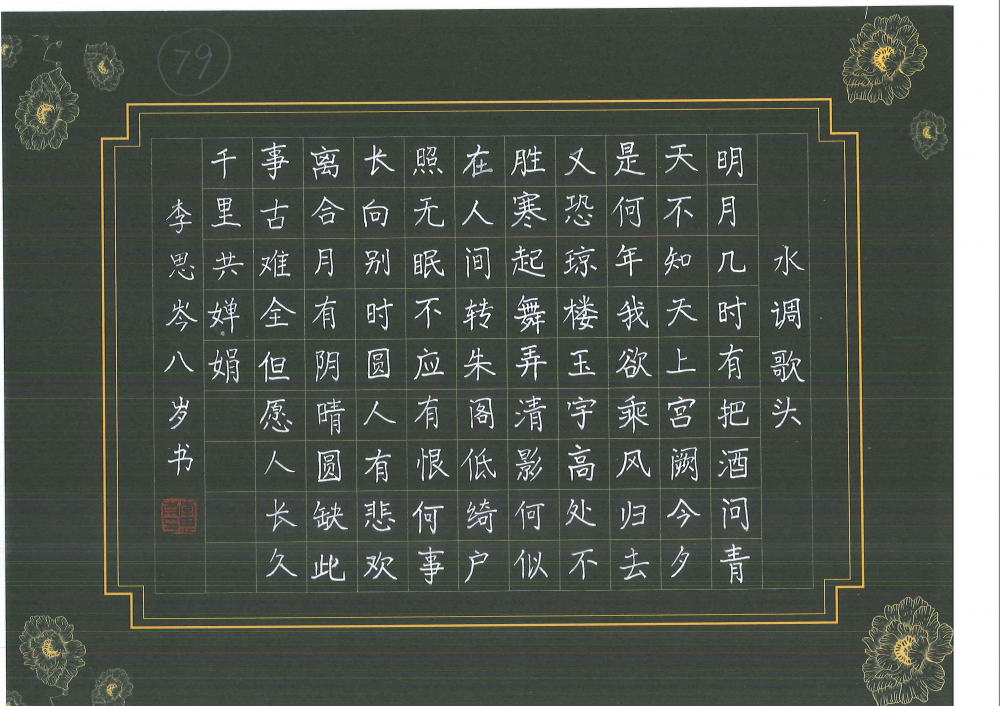 79
水调歌头
明月几时有把酒问青
天不知天上宫阙今夕
是何年我欲乘风归去
又恐琼楼玉宇高处不
胜寒起舞弄清影何似
在人间转朱阁低绮户
照无眠不应有恨何事
长向别时圆人有悲欢
离合月有阴晴圆缺此
事古难全但愿人长久
千里共婵娟
李思岑八岁书